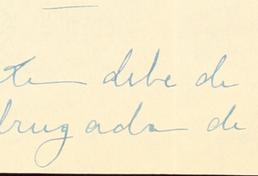 te debe de
drugada de